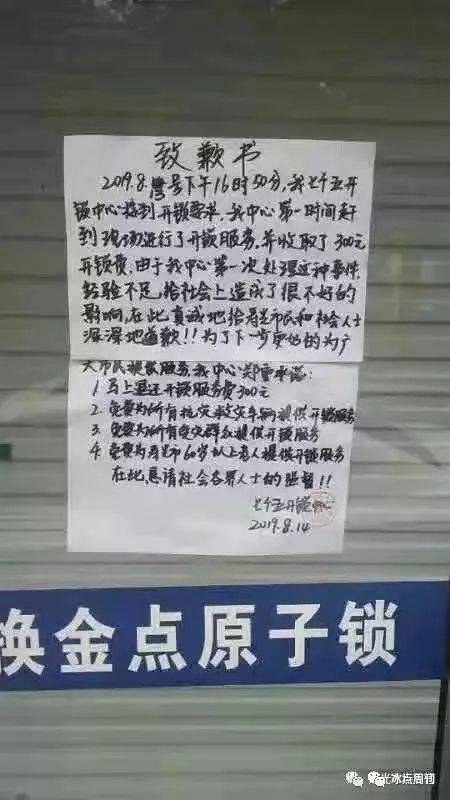 致歉书
2019.8.号下午16时50分,我七千五开
锁中心接到开锁要求,我中心第一时间赶
到现场进行了开锁服务,并收取了300元
开锁费,由于我中心第一次处理这种事件,
经验不足,给社会上造成了很不好的
影响,在此真诚地给寿光市民和社会人士
深深地道歉!!为了下一步更好的为广
大市民提供服务,我中心郑重承诺:
1 马上退还开锁服务费300元
2 免费为所有抢灾救灾车辆提供开锁服务
3 免费为所有受灾群众提供开锁服务
4 免费为寿光市60岁以上老人提供开锁服务
在此,恳请社会各界人士的监督!!
七千五开锁中心
2019.8.14
换金点原子锁
光冰点周刊